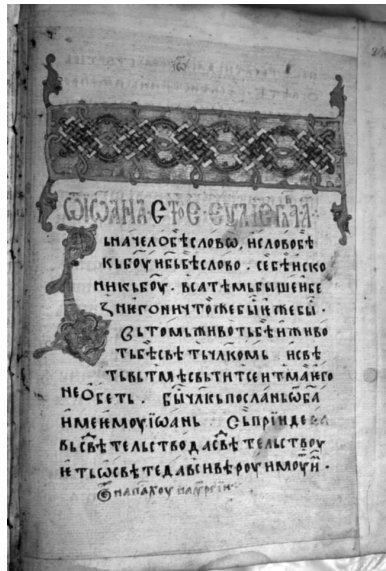 ѿ іѡана с҃тое еѵа҃ліе гла҃
Вьначелобѣсловѡ, ислово бѣ
кьбоу ибьбѣслово. се бѣ иско
никьбоу. всатѣмь бышеи бе
зниегоничтоже бы иже бы.
Сьтомь живот бѣ и живо
ть бѣ свѣть чл҃комь и свѣ
ть вьтмѣ сьтитсе итма него
не обеть. Бы чл҃кь посланьѿ ба
име емоу іѡань
вь свѣтельство да свѣтельствоу
иеть ѡ свѣте да вси вѣроу имоу и.